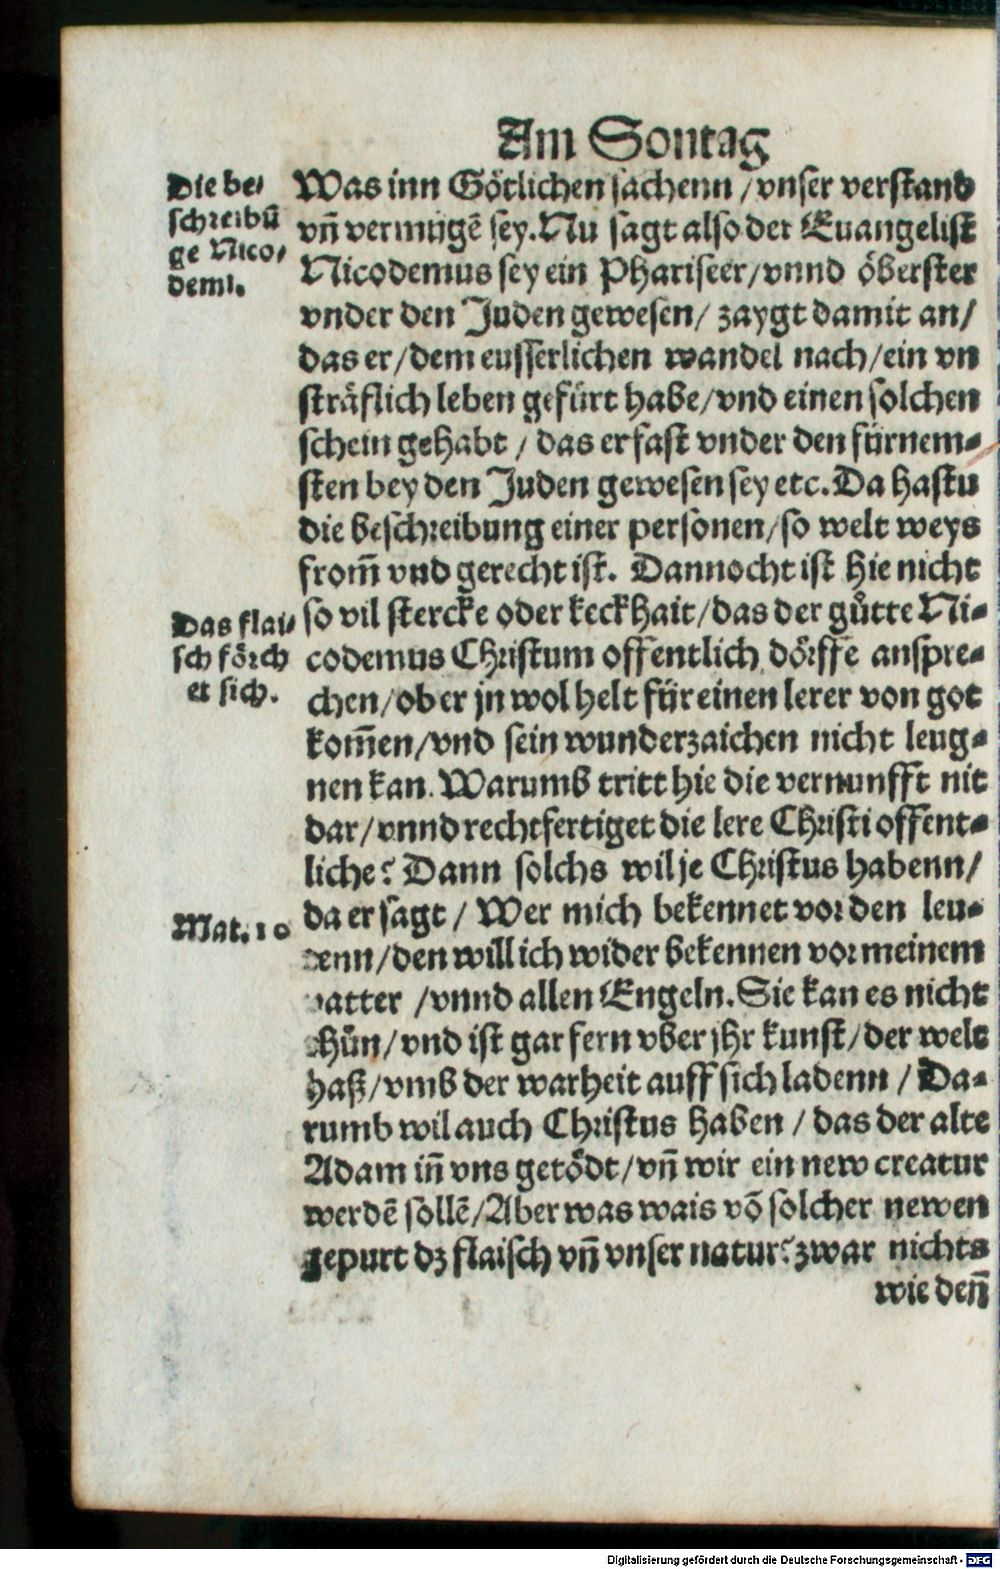 Am Sontag
Die be⸗
schreibũ
ge Nico⸗
demi.
Was inn Götlichen sachenn / vnser verstand
vñ vermügẽ sey. Nu sagt also der Euangelist
Nicodemus sey ein Phariseer / vnnd öberster
vnder den Juden gewesen / zaygt damit an /
das er / dem eusserlichen wandel nach / ein vn
sträflich leben gefürt habe / vnd einen solchen
schein gehabt / das er fast vnder den fürnem⸗
sten bey den Juden gewesen sey etc. Da hastu
die beschreibung einer personen / so welt weys
from̃ vnd gerecht ist. Dannocht ist hie nicht
Das flai⸗
sch förch
et sich.
so vil stercke oder keckhait / das der gůtte Ni⸗
codemus Christum offentlich dörffe anspre⸗
chen / ob er jn wol helt für einen lerer von got
kom̃en / vnd sein wunderzaichen nicht leug⸗
nen kan. Warumb tritt hie die vernunfft nit
dar / vnnd rechtfertiget die lere Christi offent⸗
liche? Dann solchs wil je Christus habenn /
Mat. 10
da er sagt / Wer mich bekennet vor den leu⸗
denn / den will ich wider bekennen vor meinem
vatter / vnnd allen Engeln. Sie kan es nicht
thůn / vnd ist gar fern vber jhr kunst / der welt
haß / vmb der warheit auff sich ladenn / Da⸗
rumb wil auch Christus haben / das der alte
Adam iñ vns getödt / vñ wir ein new creatur
werdẽ sollẽ / Aber was wais võ solcher newen
gepurt dz flaisch vñ vnser natur? zwar nichts
wie deñ
Digitalisierung gefördert durch die Deutsche Forschungsgemeinschaft - DFG